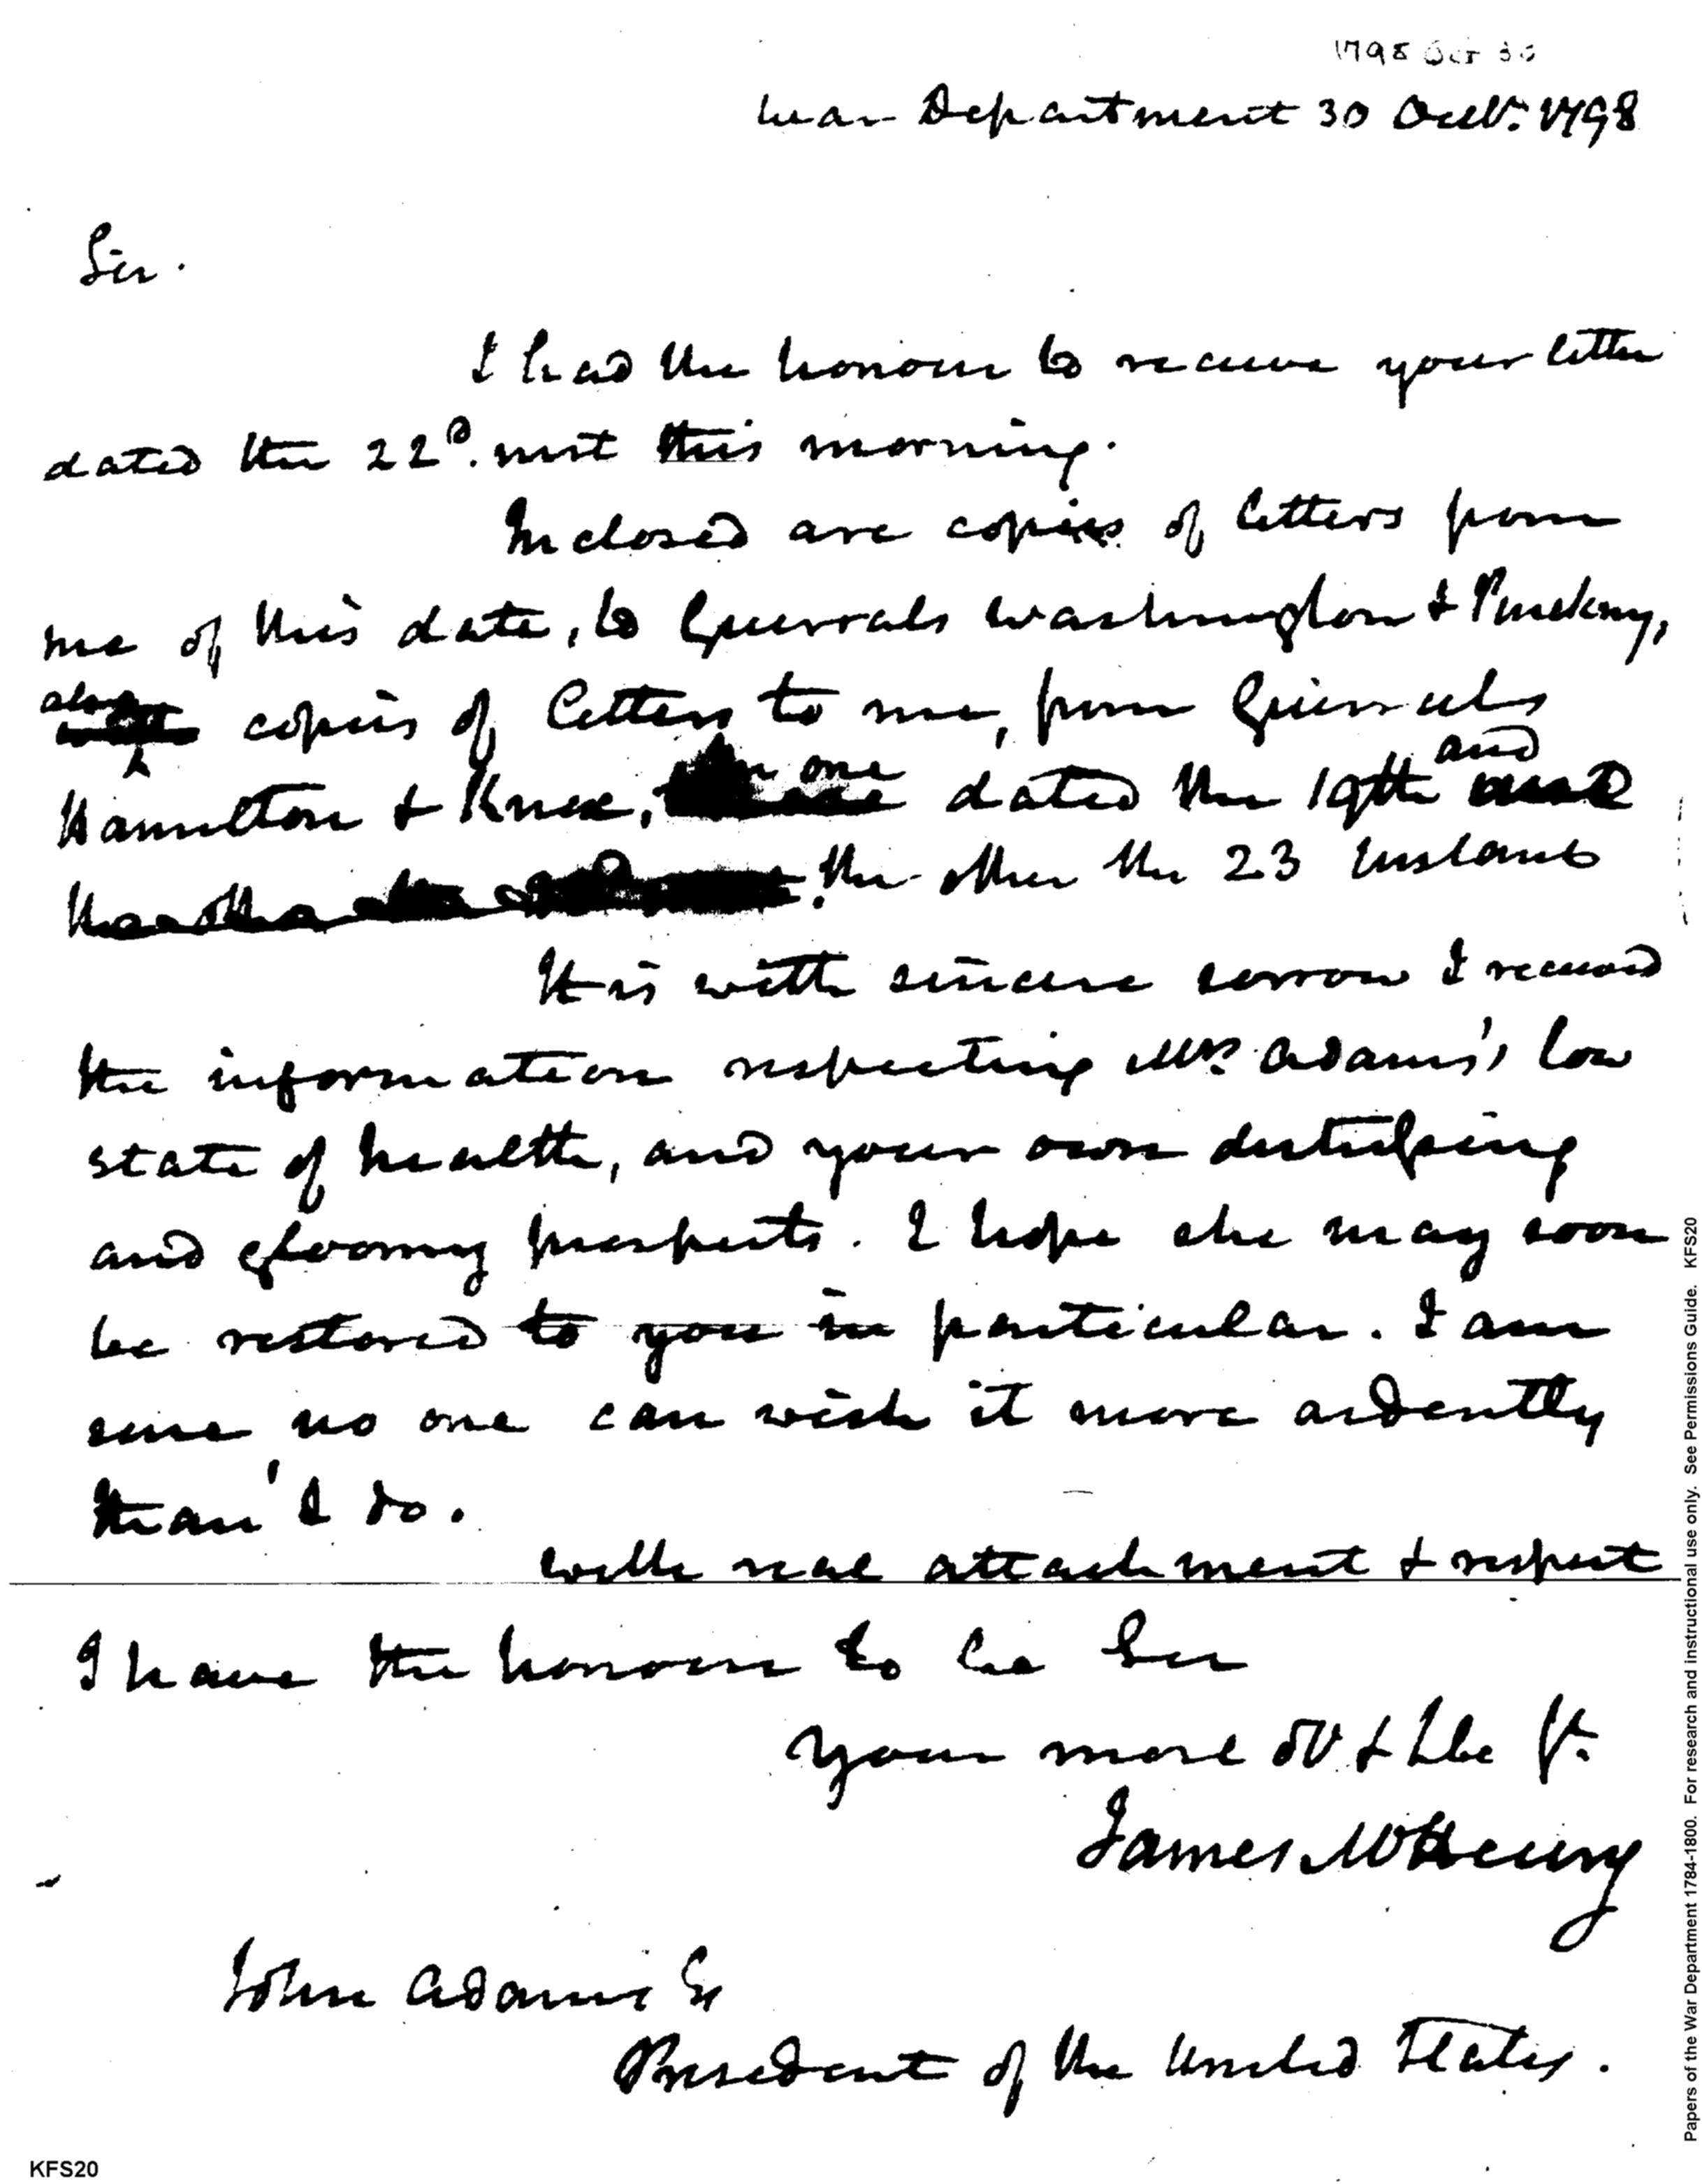 1798 Oct 30
War Department 30 Octbr. 1798
Sir.
I had the honour to receive your letter
dated the 22d. inst this morning.
Inclosed are copies of letters from
me of this date, to Generals Washington & Pinckny,
also
copies of letters to me, from Generals
and
one
Hamilton & Knox, dated the 19th
the other the 23 instant
It is with sincere sorrow I received
the information respecting Mrs. Adams's low
state of health, and your own distressing
and gloomy prospects. I hope she may soon
be restored to you in particular. I am
sure no one can wish it more ardently
than I do.
with real attachment & respect
I have the honour to be Sir
your most obt & hble st.
James McHenry
John Adams Es
President of the United States.
Papers of the War Department 1784-1800. For research and instructional use only. See Permissions Guide. KFS20
KFS20